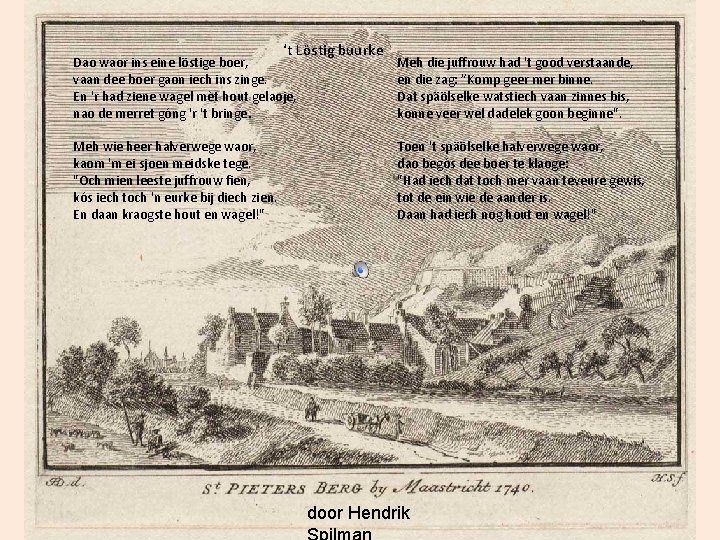 't Löstig buurke
Dao waor ins eine löstige boer,
vaan dee boer gaon iech ins zinge.
En 'r had ziene wagel mèt hout gelaoje,
nao de merret góng 'r 't bringe.
Meh wie heer halverwege waor,
kaom 'm ei sjoen meidske tege.
"Och mien leeste juffrouw fien,
kós iech toch 'n eurke bij diech zien.
En daan kraogste hout en wagel!"
Meh die juffrouw had 't good verstaande,
en die zag: "Komp geer mer binne.
Dat späölselke watstiech vaan zinnes bis,
konne veer wel dadelek goon beginne".
Toen 't späölselke halverwege waor,
dao begós dee boer te klaoge:
"Had iech dat toch mer vaan teveure gewis,
tot de ein wie de aander is.
Daan had iech nog hout en wagel!"
St PIETERS BERG by Maastricht 1740.
H.S.f.
door Hendrik
Spilman